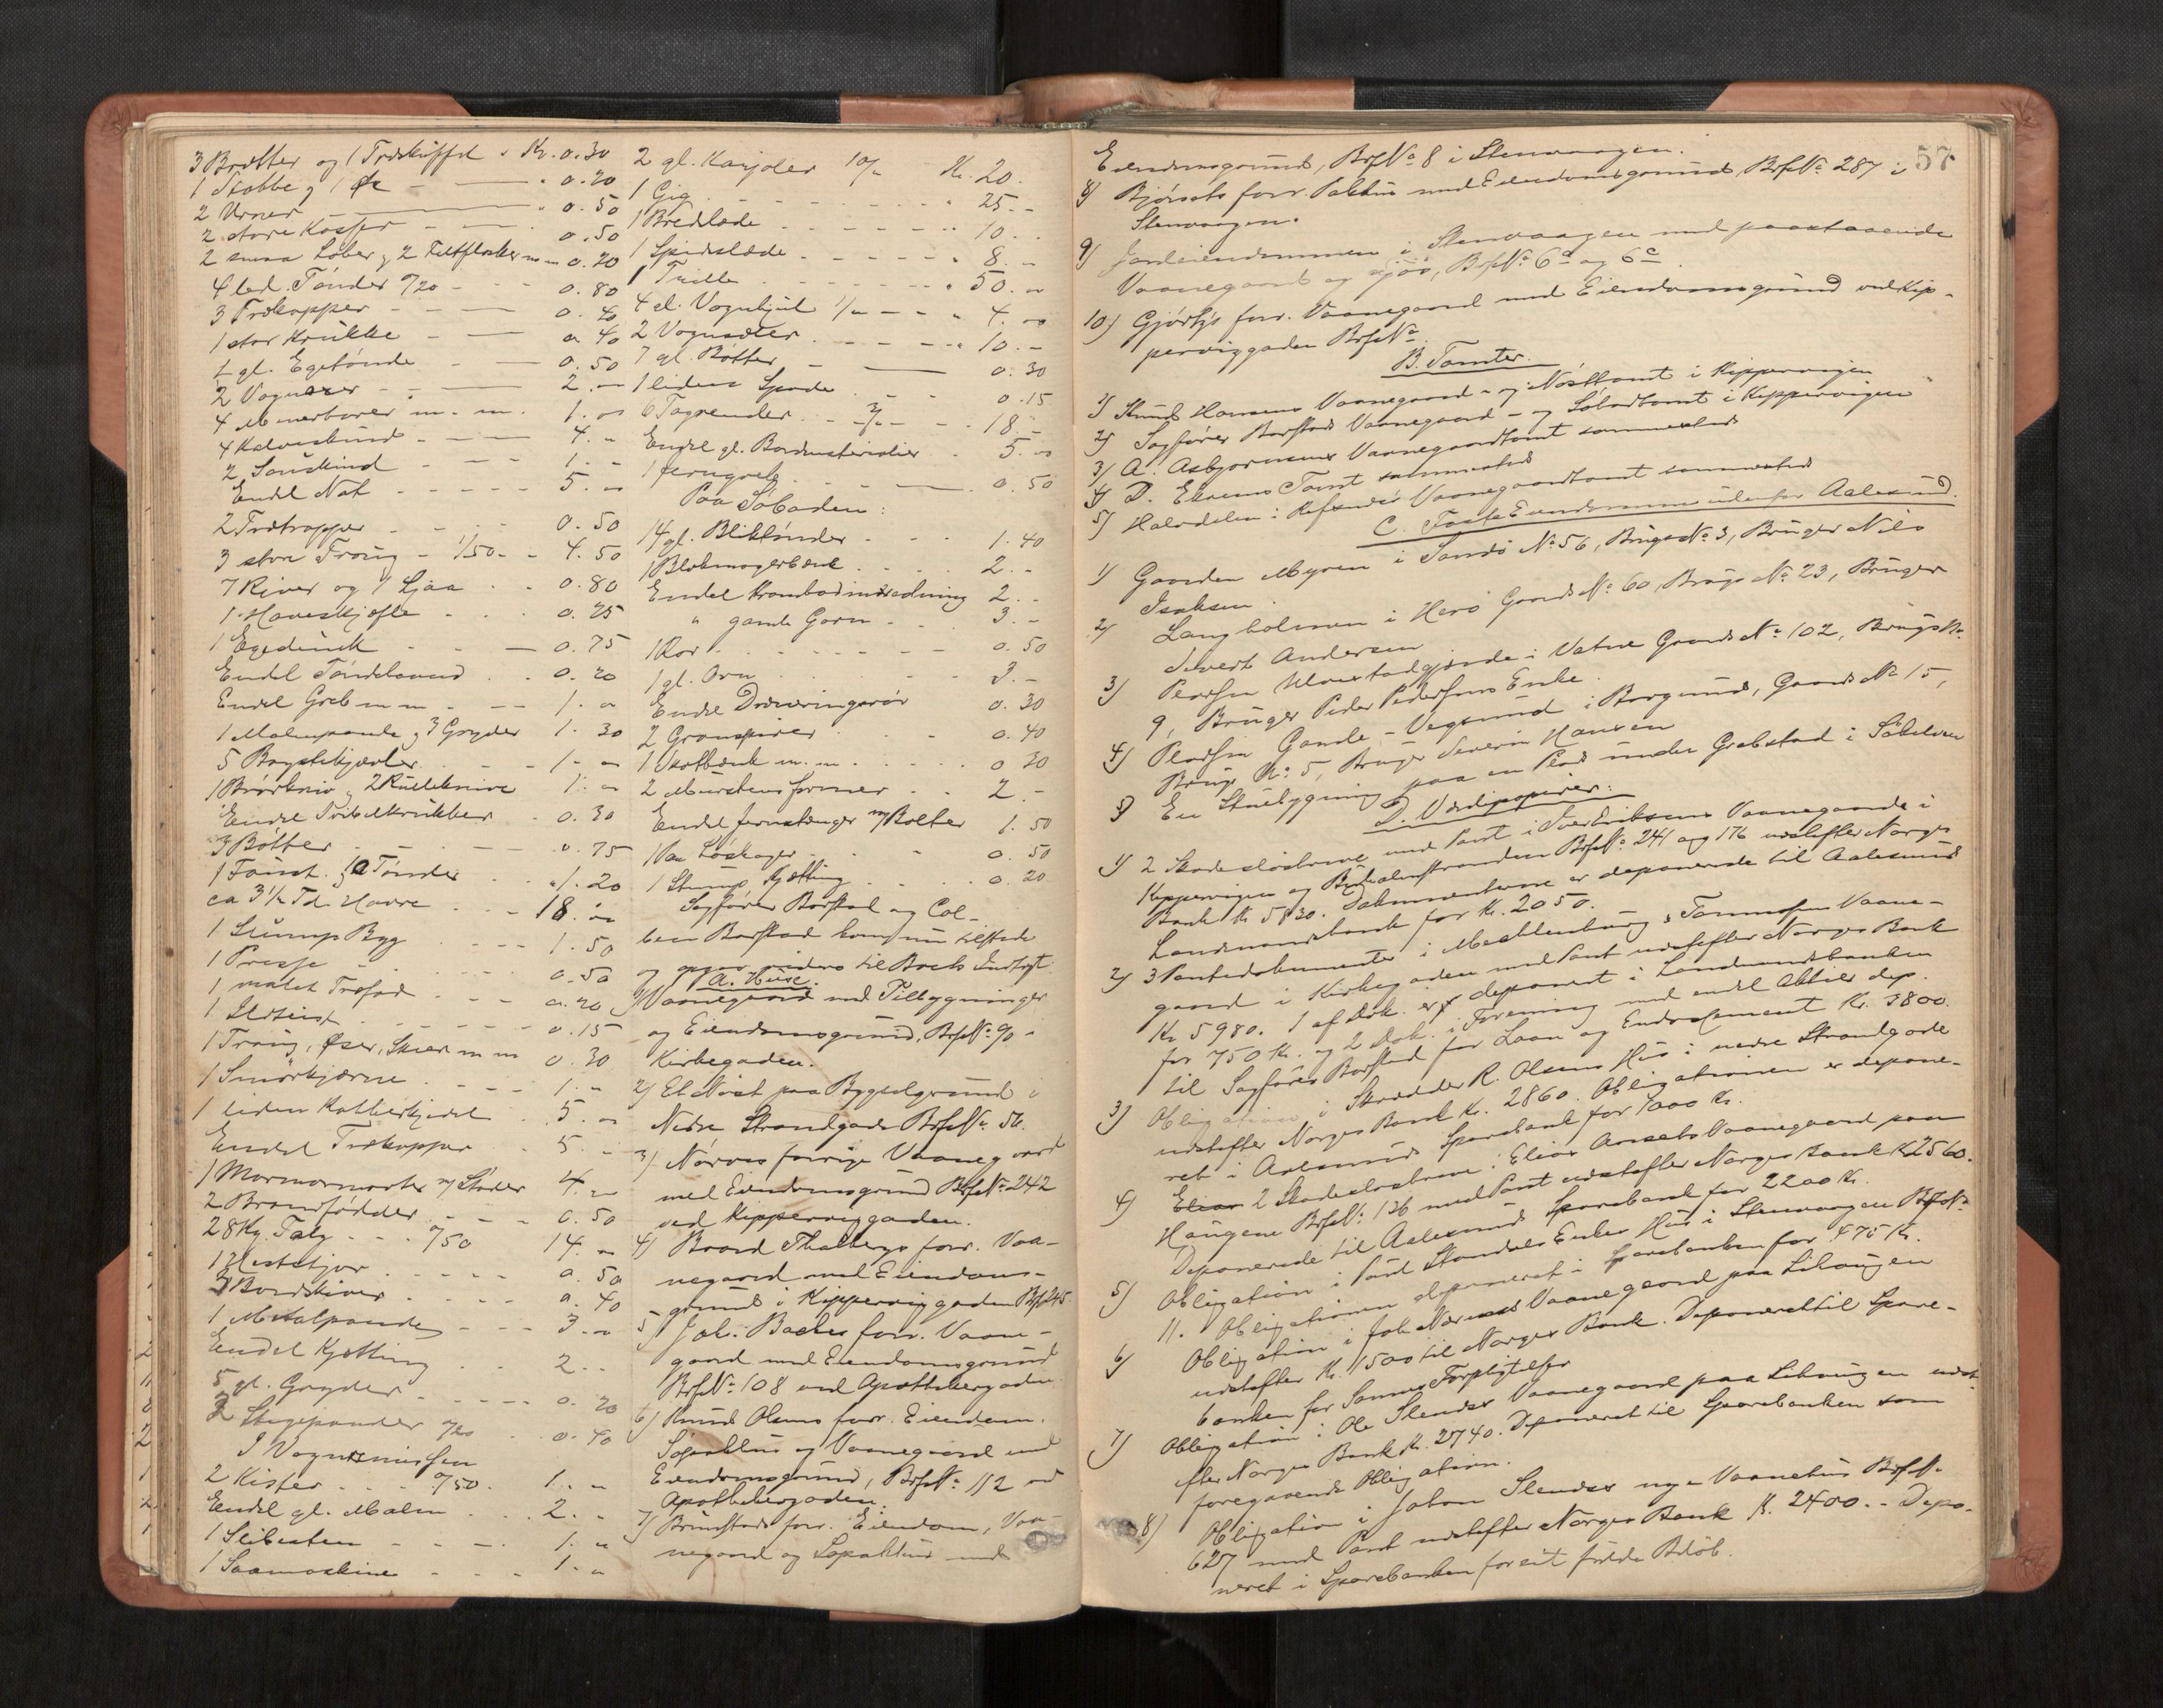 3 Brætter og 1 Træskuffel " Kr. 0.30
1 Stabbe og 1 Øx — " 0.20
2 Urner — " 0.50
2 store Kasser — 0.50
2 smaa Løber og 2 Feltflasker m.m. 0.20
4 led. Tønder %20 - 0.80
3 Trækopper - 0.40
1 stor Krukke — 0.40
1 gl. Egetønde — 0.50
2 Vognaxer - 2.-
4 m.m. 1.-
4 Kalveskind - 4.-
2 Saueskind - 1.-
Endel Not - 5.-
2 Trætrapper - 0.50
3 store Traug - 1/50 - 4.50
7 River og 1 Ljaa - 0.80
1 Haveskjefle - 0.25
1 Egedunk — 0.75
Endel Tøndebaand - 0.20
Endel Greb m m — 1.-
1 Malmpande og 3 Gryder 1.30
5 1.-
1 og 2 Rulleknive 1.-
Endel 0.30
3 Bøtter — 0.75
1 og Tønder 1.20
ca 3½ Td. Havre - 18.-
1 Slump Byg - 1.50
1 Presse - 0.50
1 malet Træfad - 0.20
1 - 0.15
1 Traug, Øser, m m 0.30
1 Smørkjærne - 1.-
1 liden Kobberkjedel 5.-
Endel Trækopper 5.-
1 Marmormorter m/ Støder 4.-
2 - 0.50
28 Kg. Talg - %50 14.-
1 - 0.50
3 Bordskiver - 0.40
1 Metalpande - 3.-
Endel Kjetting - 2.-
5 gl. Gryder - 0.20
2 Stegepander %20 - 0.40
I Vognremissen
2 Kister - %50. 1.-
Endel gl. Malm - 2.-
1 Slibesten - 1.-
1 Saamaskine - 1.-
2 gl. Karjoler 10/- Kr. 20.
1 Gig - 25.-
1 Bredslæde - " 10.-
1 Spidsslæde - " 8.-
1 Trille - " 50.-
4 el. Vognhjul 1/- - " 4.-
2 Vognsæter - " 10.-
7 gl. Bøtter — 0.30
1 liden Spade - 0.15
6 Tagrender - 3/- - 18.-
Endel gl. Bordmaterialier - 5.-
1 Jerngreb — 0.50
Paa Søboden:
14 gl. Bliktønder - 1.40
1 Blokmagerbænk - 2.-
Endel Krambodindredning 2.-
" gamle Garn - 3.-
1 Ror - 0.50
1 gl. Ovn - 3.-
Endel Dræneringsrør 0.30
2 Granspirer - 0.40
1 m.m. - 0.20
2 Murstensformer - 2.-
Endel Jernstænger m/ Bolter 1.50
1 Par - 0.50
1 Stump Kjetting - 0.20
Sagfører Barstad og Col-
bein Barstad kom nu tilstede
og opgav videre til Boets Indtægt
A. Huse.
1) Vaanegaard med Tilbygninger
og Eiendomsgrund, Brf.No. 90 i
Kirkegaden.
2) Et Nøst paa Bygselgrund i
Nedre Strandgade Brf.No. 56.
3) Nørves forrige Vaanegaard
med Eiendomsgrund Brf.No. 242
ved Kipperviggaden.
4) Baard Thalbergs forr. Vaa-
negaard med Eiendoms-
grund i Kipperviggaden Brf. 245.
5) Joh. Backes forr. Vaane-
gaard med Eiendomsgrund
Brf.No. 108 ved Apothekergaden
6) Knud Olsens forr. Eiendom.
Søpakhus og Vaanegaard med
Eiendomsgrund, Brf.No. 112 ved
Apothekergaden.
7) Brunstads forr. Eiendom, Vaa-
negaard og Søpakhus med
57
Eiendomsgrund, Brf.No. 8 i Stenvaagen.
8) Bjørsets forr. Pakhus med Eiendomsgrund Brf.No. 287 i
Stenvaagen.
9) Jordeiendommen i Stenvaagen med paastaaende
Vaanegaard og Brf.No. 6a og 6c
10) Gjørtz's forr. Vaanegaard med Eiendomsgrund ved Kip-
perviggaden Brf.No.
B. Tomter.
1) Knud Hansens Vaanegaard- og Nøsttomt i Kippervigen
2) Sagfører Barstads Vaanegaard- og Søbodtomt i Kippervigen
3) A. Asbjørnsens Vaanegaardtomt sammesteds
4) D. Tomt sammesteds
5) Halvdelen i Vaanegaardtomt sammesteds
C. Faste Eiendomme udenfor Aalesund.
1) Gaarden Myren i Sandø No. 56, Brugs No. 3, Bruger Nils
Isaksen.
2) Langholmen i Herø Gaards No. 60, Brugs No. 23, Bruger
Sivert Andersen
3) Pladsen i Vatne Gaards No. 102, Brugs No.
9, Bruger Peder Pedersens Enke.
4) Pladsen Gamle-Vegsund i Borgund, Gaards No. 15,
Brugs No. 5, Bruger Severin Hansen
5) En Stuebygning paa en Plads under Grebstad i Søkelven
D. Værdipapirer:
1) 2 Skadesløsbreve med Pant i Iver Eriksens Vaanegaarde i
Kippervigen og Brf.No. 241 og 176 udstefter Norges
Bank Kr. 5830. Dokumenterne er deponerede til Aalesunds
Landmandsbank for Kr. 2050.
2) 3 Pantedokumenter i Mecklenburg & Tønnesens Vaane-
gaard i Kirkegaden med Pant udstefter Norges Bank
Kr 5980. 1 af Dok. er deponeret i Landmandsbanken
for 750 Kr. og 2 Dok. i Forening med endel Aktier dep.
til Sagfører Barstad for Laan og Endossement Kr. 3800.
3) Obligation i Skrædder R. Olsens Hus i nedre Strandgade
udstefter Norges Bank Kr. 2860. Obligationen er depone-
ret i Aalesunds Sparebank for 1000 Kr.
4) Elias 2 Skadesløsbreve i Elias Vaanegaard paa
Haugene Brf.No. 136 med Pant udstefter Norges Bank K 2560.
Deponerede til Aalesunds Sparebank for 2200 Kr.
5) Obligation i Enkes Hus i Stenvaagen Brf.No.
11. Obligationen deponeret i Sparebanken for 475 Kr.
6) Obligation i Joh. Vaanegaard paa Lihaugen
udstefter Kr. 1500 til Norges Bank. Deponeret til Spare-
banken for Samme Forpligtelse
7) Obligation i Ole Slendes Vaanegaard paa Lihaugen udst-
efter Norges Bank Kr. 2740. Deponeret til Sparebanken som
foregaaende Obligation.
8) Obligation i Johan Slendes nye Vaanehus Brf.No.
627 med Pant udstefter Norges Bank K. 2400.- Depo-
neret i Sparebanken for sit fulde Beløb.